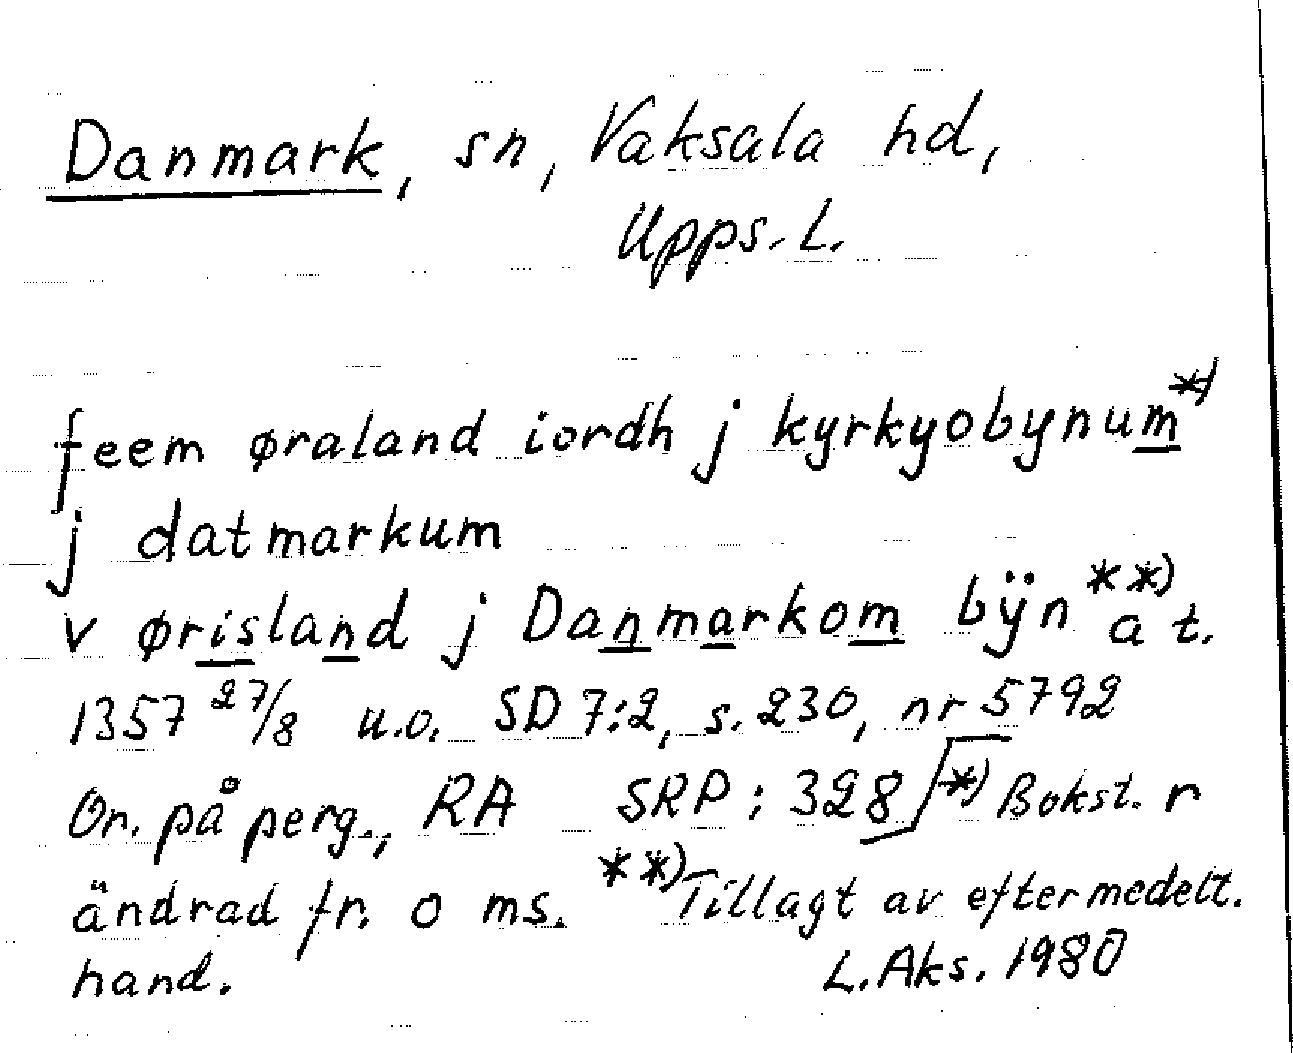 Danmark, sn, Vaksala hd,
Upps. L.
feem øraland iordh j kyrkyobynum *)
j datmarkum
v ørisland j Danmarkom bÿn **) a t.
1357 27/8 u.o. SD 7:2, s. 230, nr 5792
Or. på perg., RA SRP: 328 *) Bokst. r
ändrad fr. o ms. **) Tillagt av eftermedelt.
hand. L. Aks. 1980